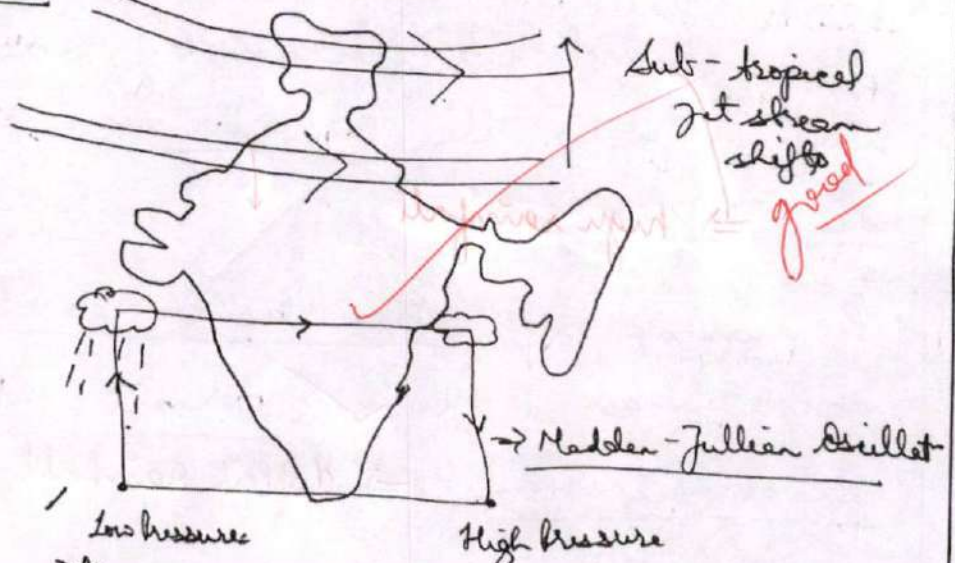 Sub-tropical
jet stream
shifts
good
→ Madden-Jullian Oscillat
Low Pressure
High Pressure